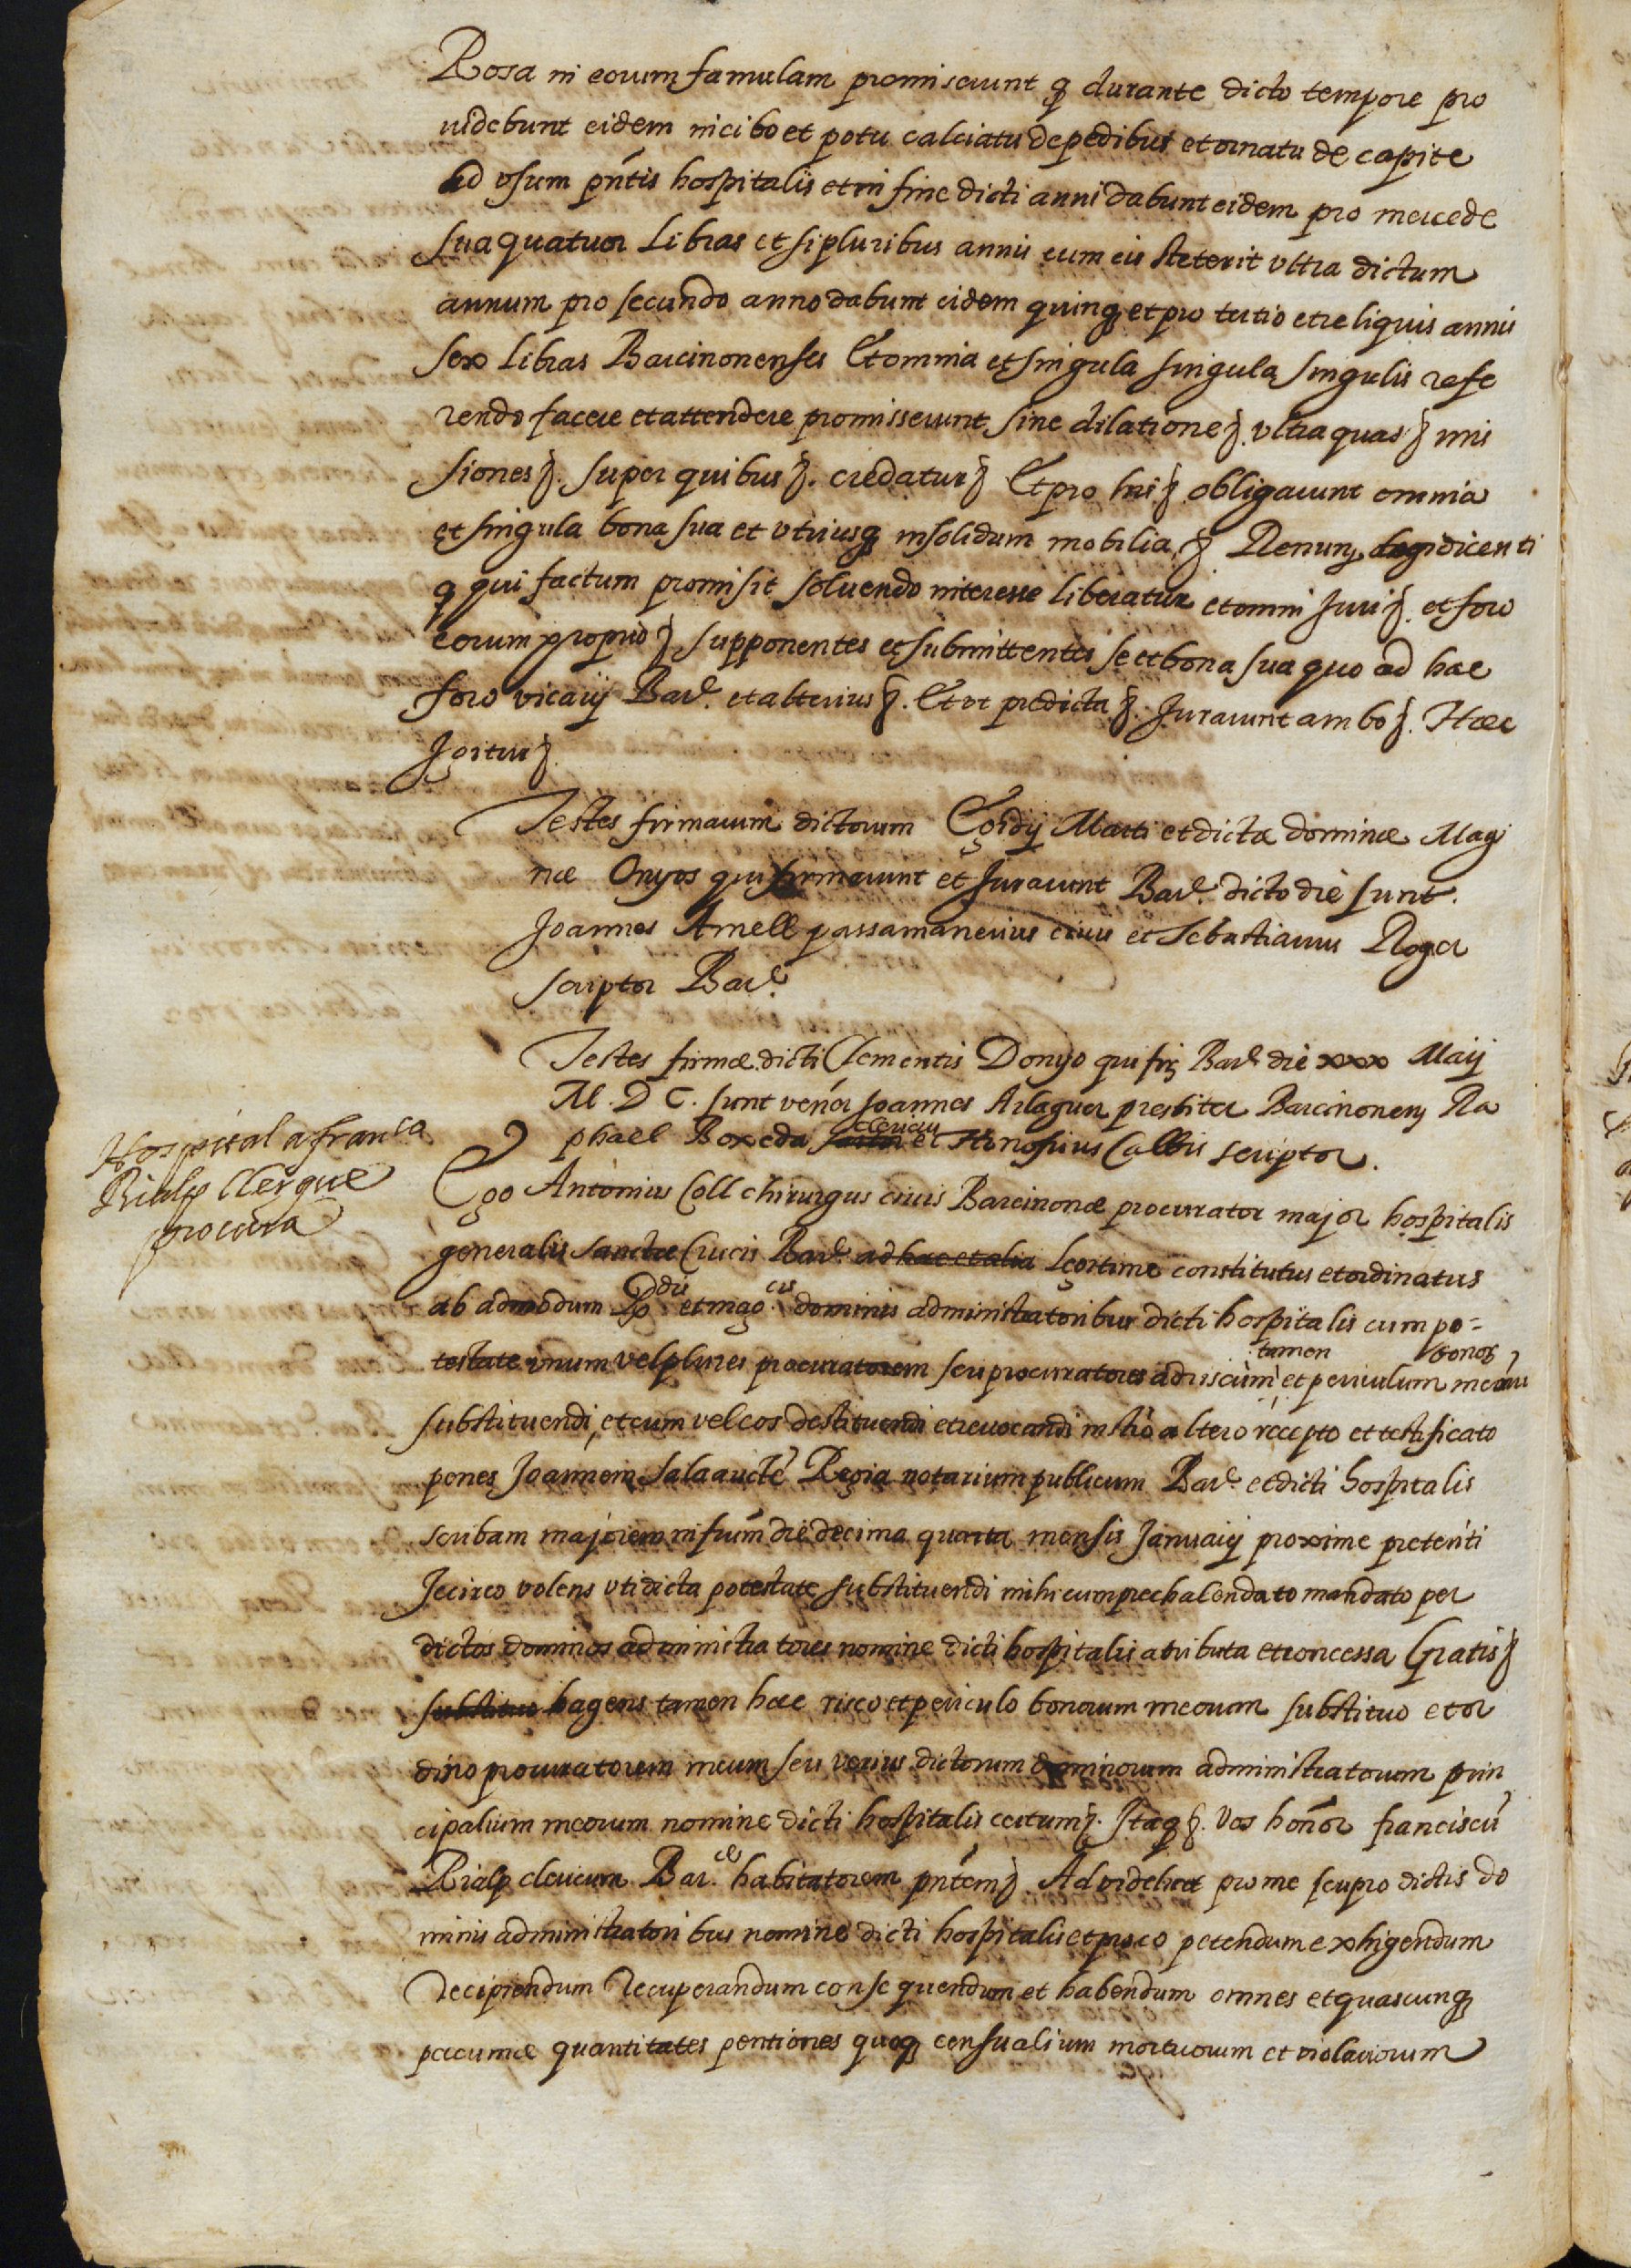 Rosa in eorum famulam promiserunt q̃ durante dicto tempore pro
uidebunt eidem in cibo et potu calciatu de pedibus et ornatu de capite
ad vsum pñtis hospitalis et in fine dicti anni dabunt eidem pro mercede
sua quatuor Libras et si pluribus annis cum eis steterit vltra dictum
annum pro secundo anno dabunt eidem quinq et pro tertio et reliquis annis
sex Libras Barcinonenses Et omnia et singula singula singulis refe
rendo facere et attendere promisserunt sine dilatione ꝫ. vltra quas ꝫ mis
siones ꝫ. super quibus ꝫ. credatur ꝫ Et pro his ꝫ obligarunt omnia
et singula bona sua et vtriusq insolidum mobilia ꝫ Renunꝫ legi dicenti
q̃ qui factum promisit soluendo interesse liberatur et omni Juri ꝫ. et foro
eorum proprio ꝫ supponentes et submittentes se et bona sua quo ad hæc
foro vicarij Barᵉ. et alterius ꝫ. Et vt predicta ꝫ. Jurarunt ambo ꝫ. Hæc
Jgitur ꝫ.
Testes firmarum dictorum Egidij Marti et dictæ dominæ Magi
næ Onyos qui firmarunt et Jurarunt Barᵉ. dicto die sunt.
Joannes Amell passamanerius ciuis et Sebastianus Roger
scriptor Barᵉ.
Testes firmæ dicti Clementis Donyo qui firꝫ Barᵉ die xxx Maij
M. D C. sunt veñor Joannes Arlaguer presbiter Barcinonenꝫ Ra
clericus
phael Boxeda sartor et Honofrius Calbis scriptor.
Hospital a franca
Rialp clergue
procura
Ego Antonius Coll chirurgus ciuis Barcinonæ procurator major hospitalis
generalis sanctæ Crucis Barᵉ ad hæc et alia legitime constitutus et ordinatus
ab admodum Rᵈⁱˢ et magᶜⁱˢ. dominis administratoribus dicti hospitalis cum po-
tamen bonorꝫ
testate vnum vel plures procuratorem seu procuratores ad riscum et periculum meorũ
substituendi, et eum vel eos destituendi et reuocandi instrõ altero recepto et testificato
penes Joannem Sala aucté Regia notarium publicum Barᵉ et dicti hospitalis
scribam majorem infrum die decima quarta mensis Januarij proxime preteriti
Jccirco volens vti dicta potestate substituendi mihi cum prechalendato mandato per
dictos dominos administratores nomine dicti hospitalis atributa et concessa Gratis ꝫ
substituo hagens tamen hæc risco et periculo bonorum meorum substituo et or
dino procuratorem meum seu verius dictorum dominorum administratorum prin
cipalium meorum nomine dicti hospitalis certum ꝫ. Jtaq ꝫ. vos hoñor franciscũ
Rialp clericum Bar.ᵉ habitatorem pñtem ꝫ Ad videlicet pro me seu pro dictis do
minis administratoribus nomine dicti hospitalis et pro eo petendum exhigendum
Recipiendum Recuperandum consequendum et habendum omnes et quascunq
pecuniæ quantitates pentiones quoq censualium mortuorum et violariorum